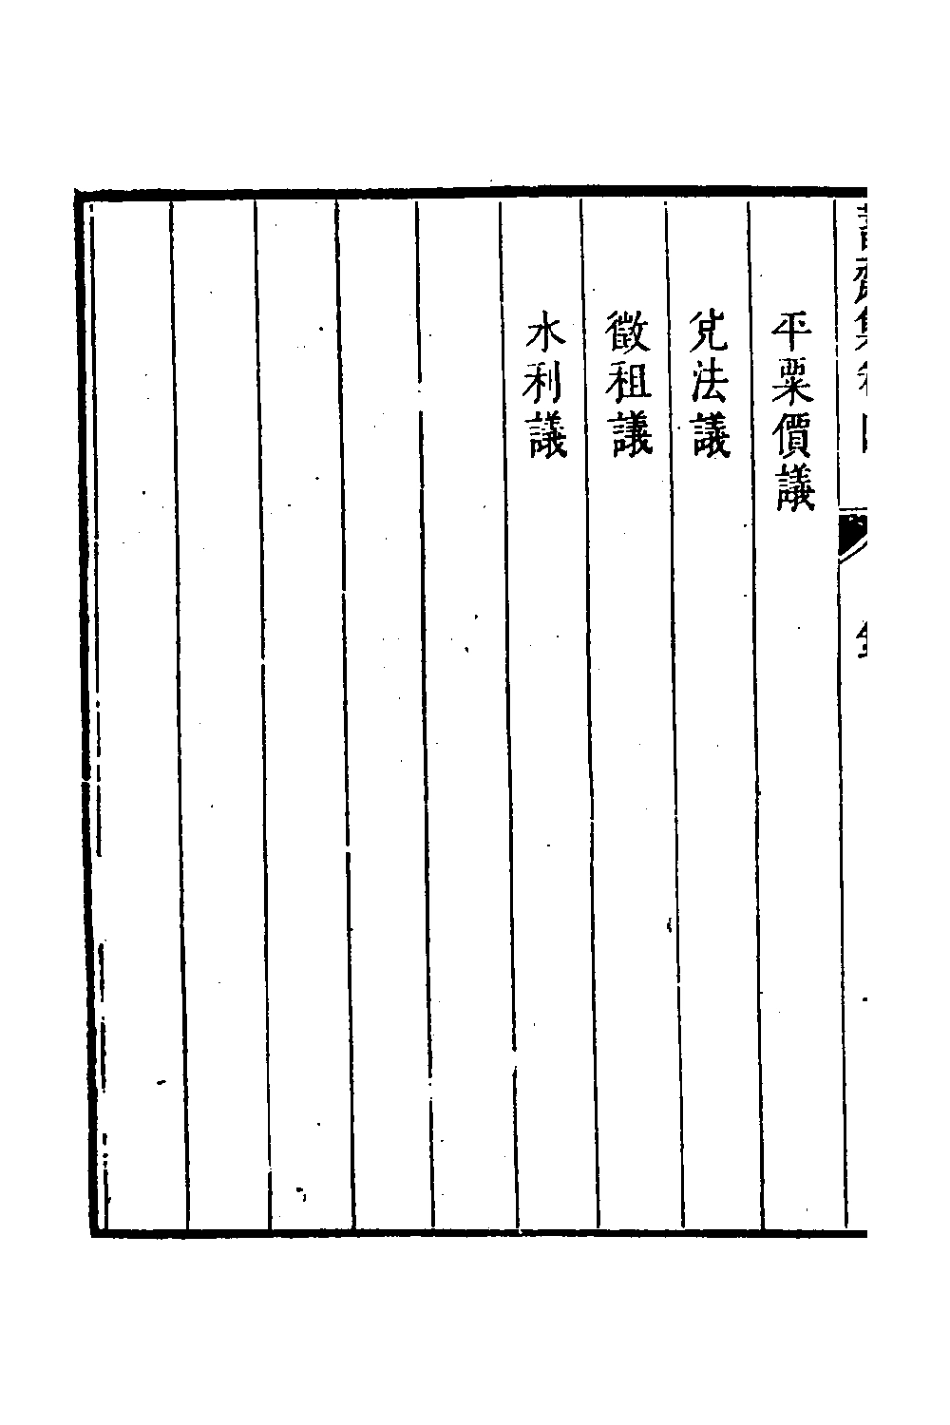 平粟價議
兌法議
徵租議
水利議